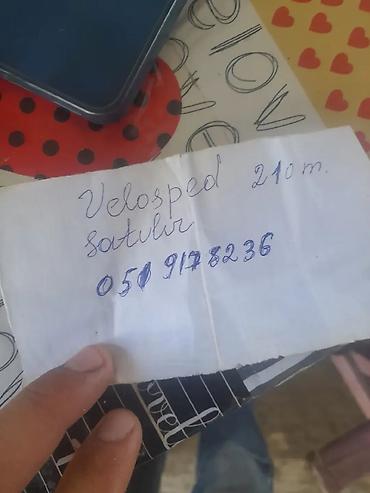 Velosped 210 m.
satılır
051 9178236
love